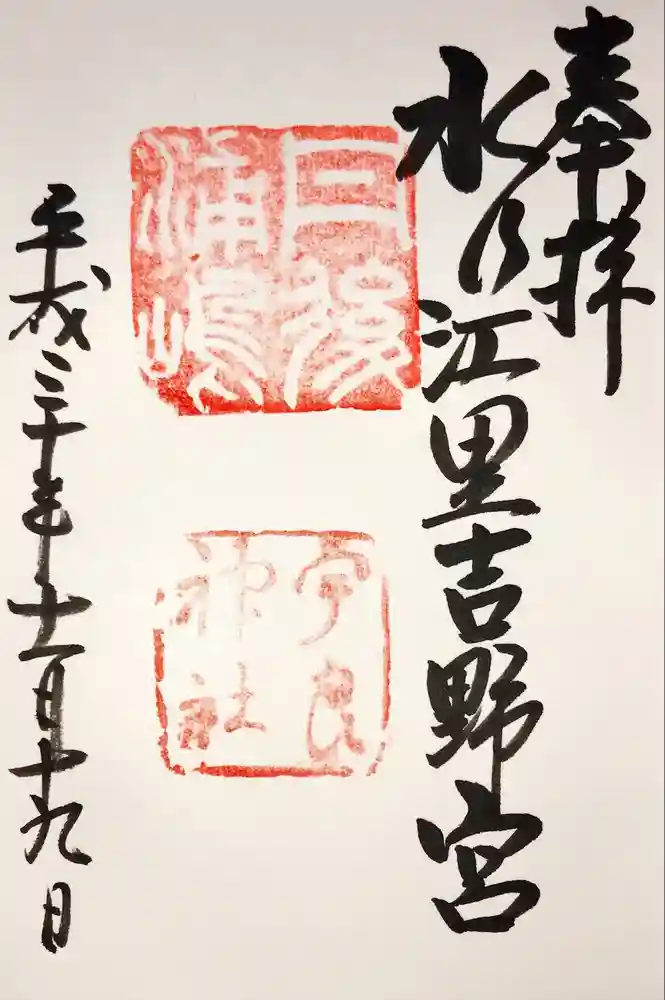 奉拝
水乃江里吉野宮
丹後
浦嶋
宇良
神社
平成三十年十一月十九日